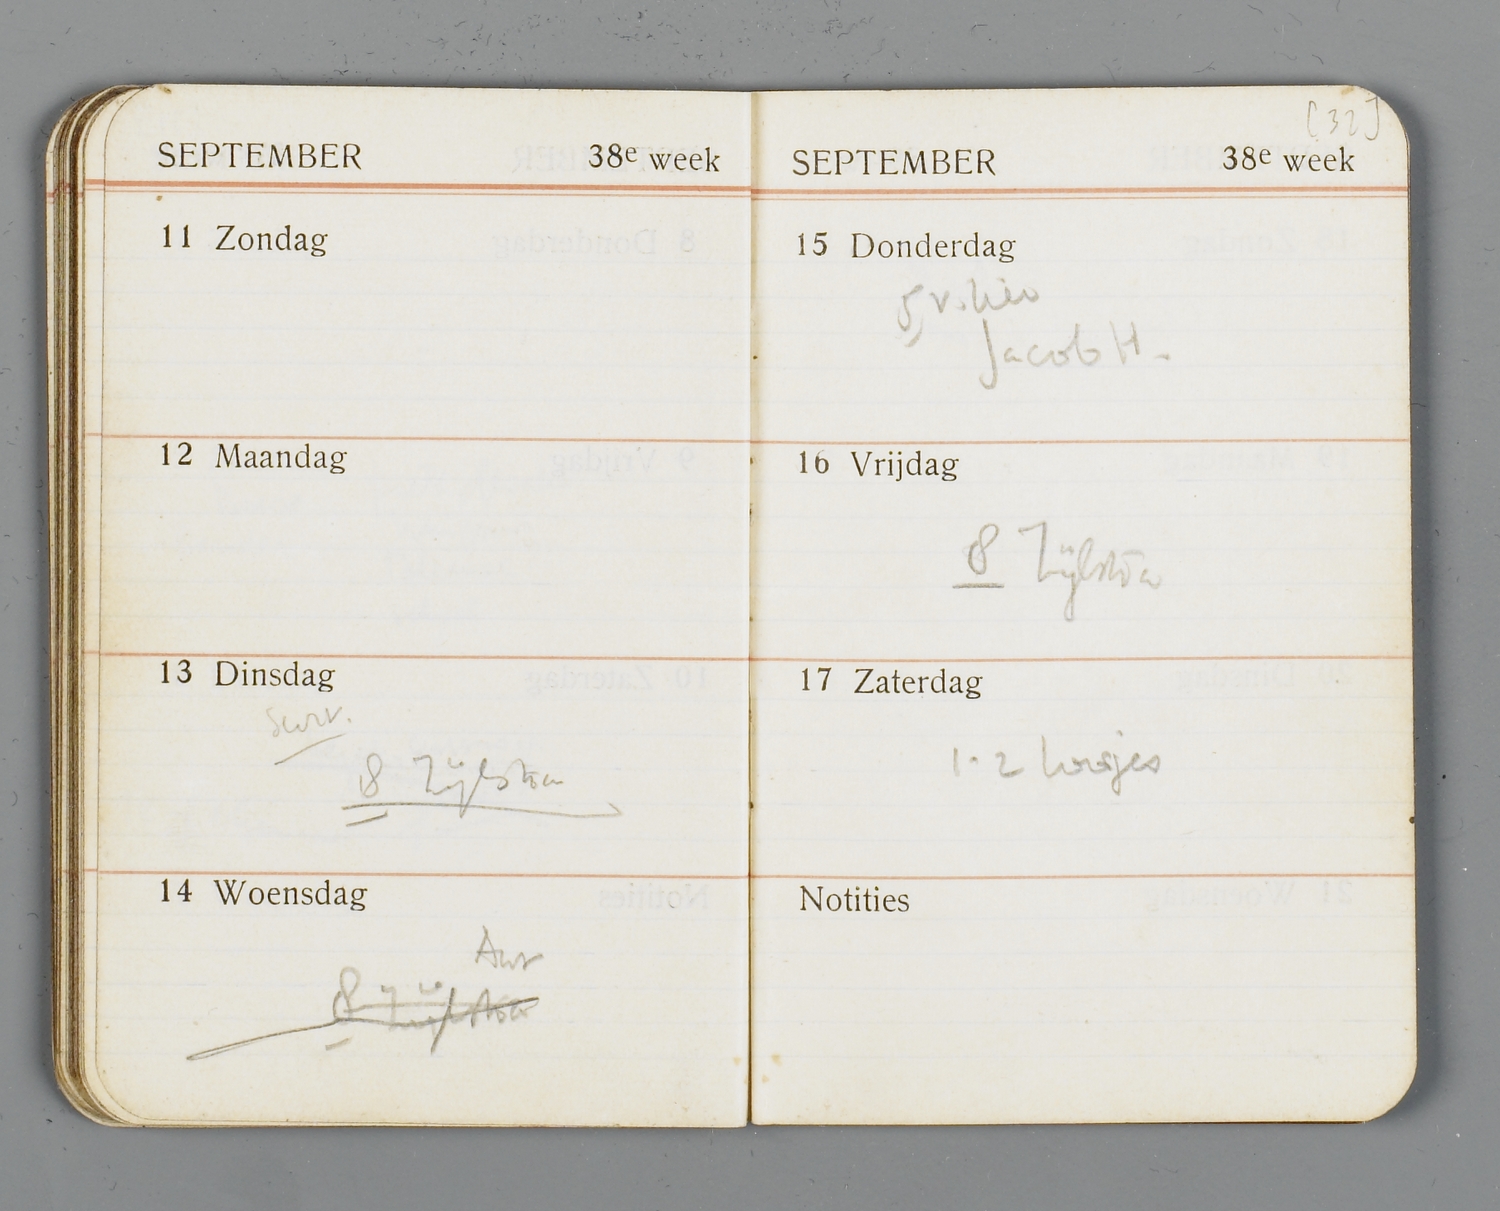 SEPTEMBER 38e week
11 Zondag
12 Maandag
13 Dinsdag
8 Zijlstra
14 Woensdag
8 Zijlstra
[32]
SEPTEMBER 38e week
15 Donderdag
5
Jacob H.
16 Vrijdag
8 Zijlstra
17 Zaterdag
1-2
Notities